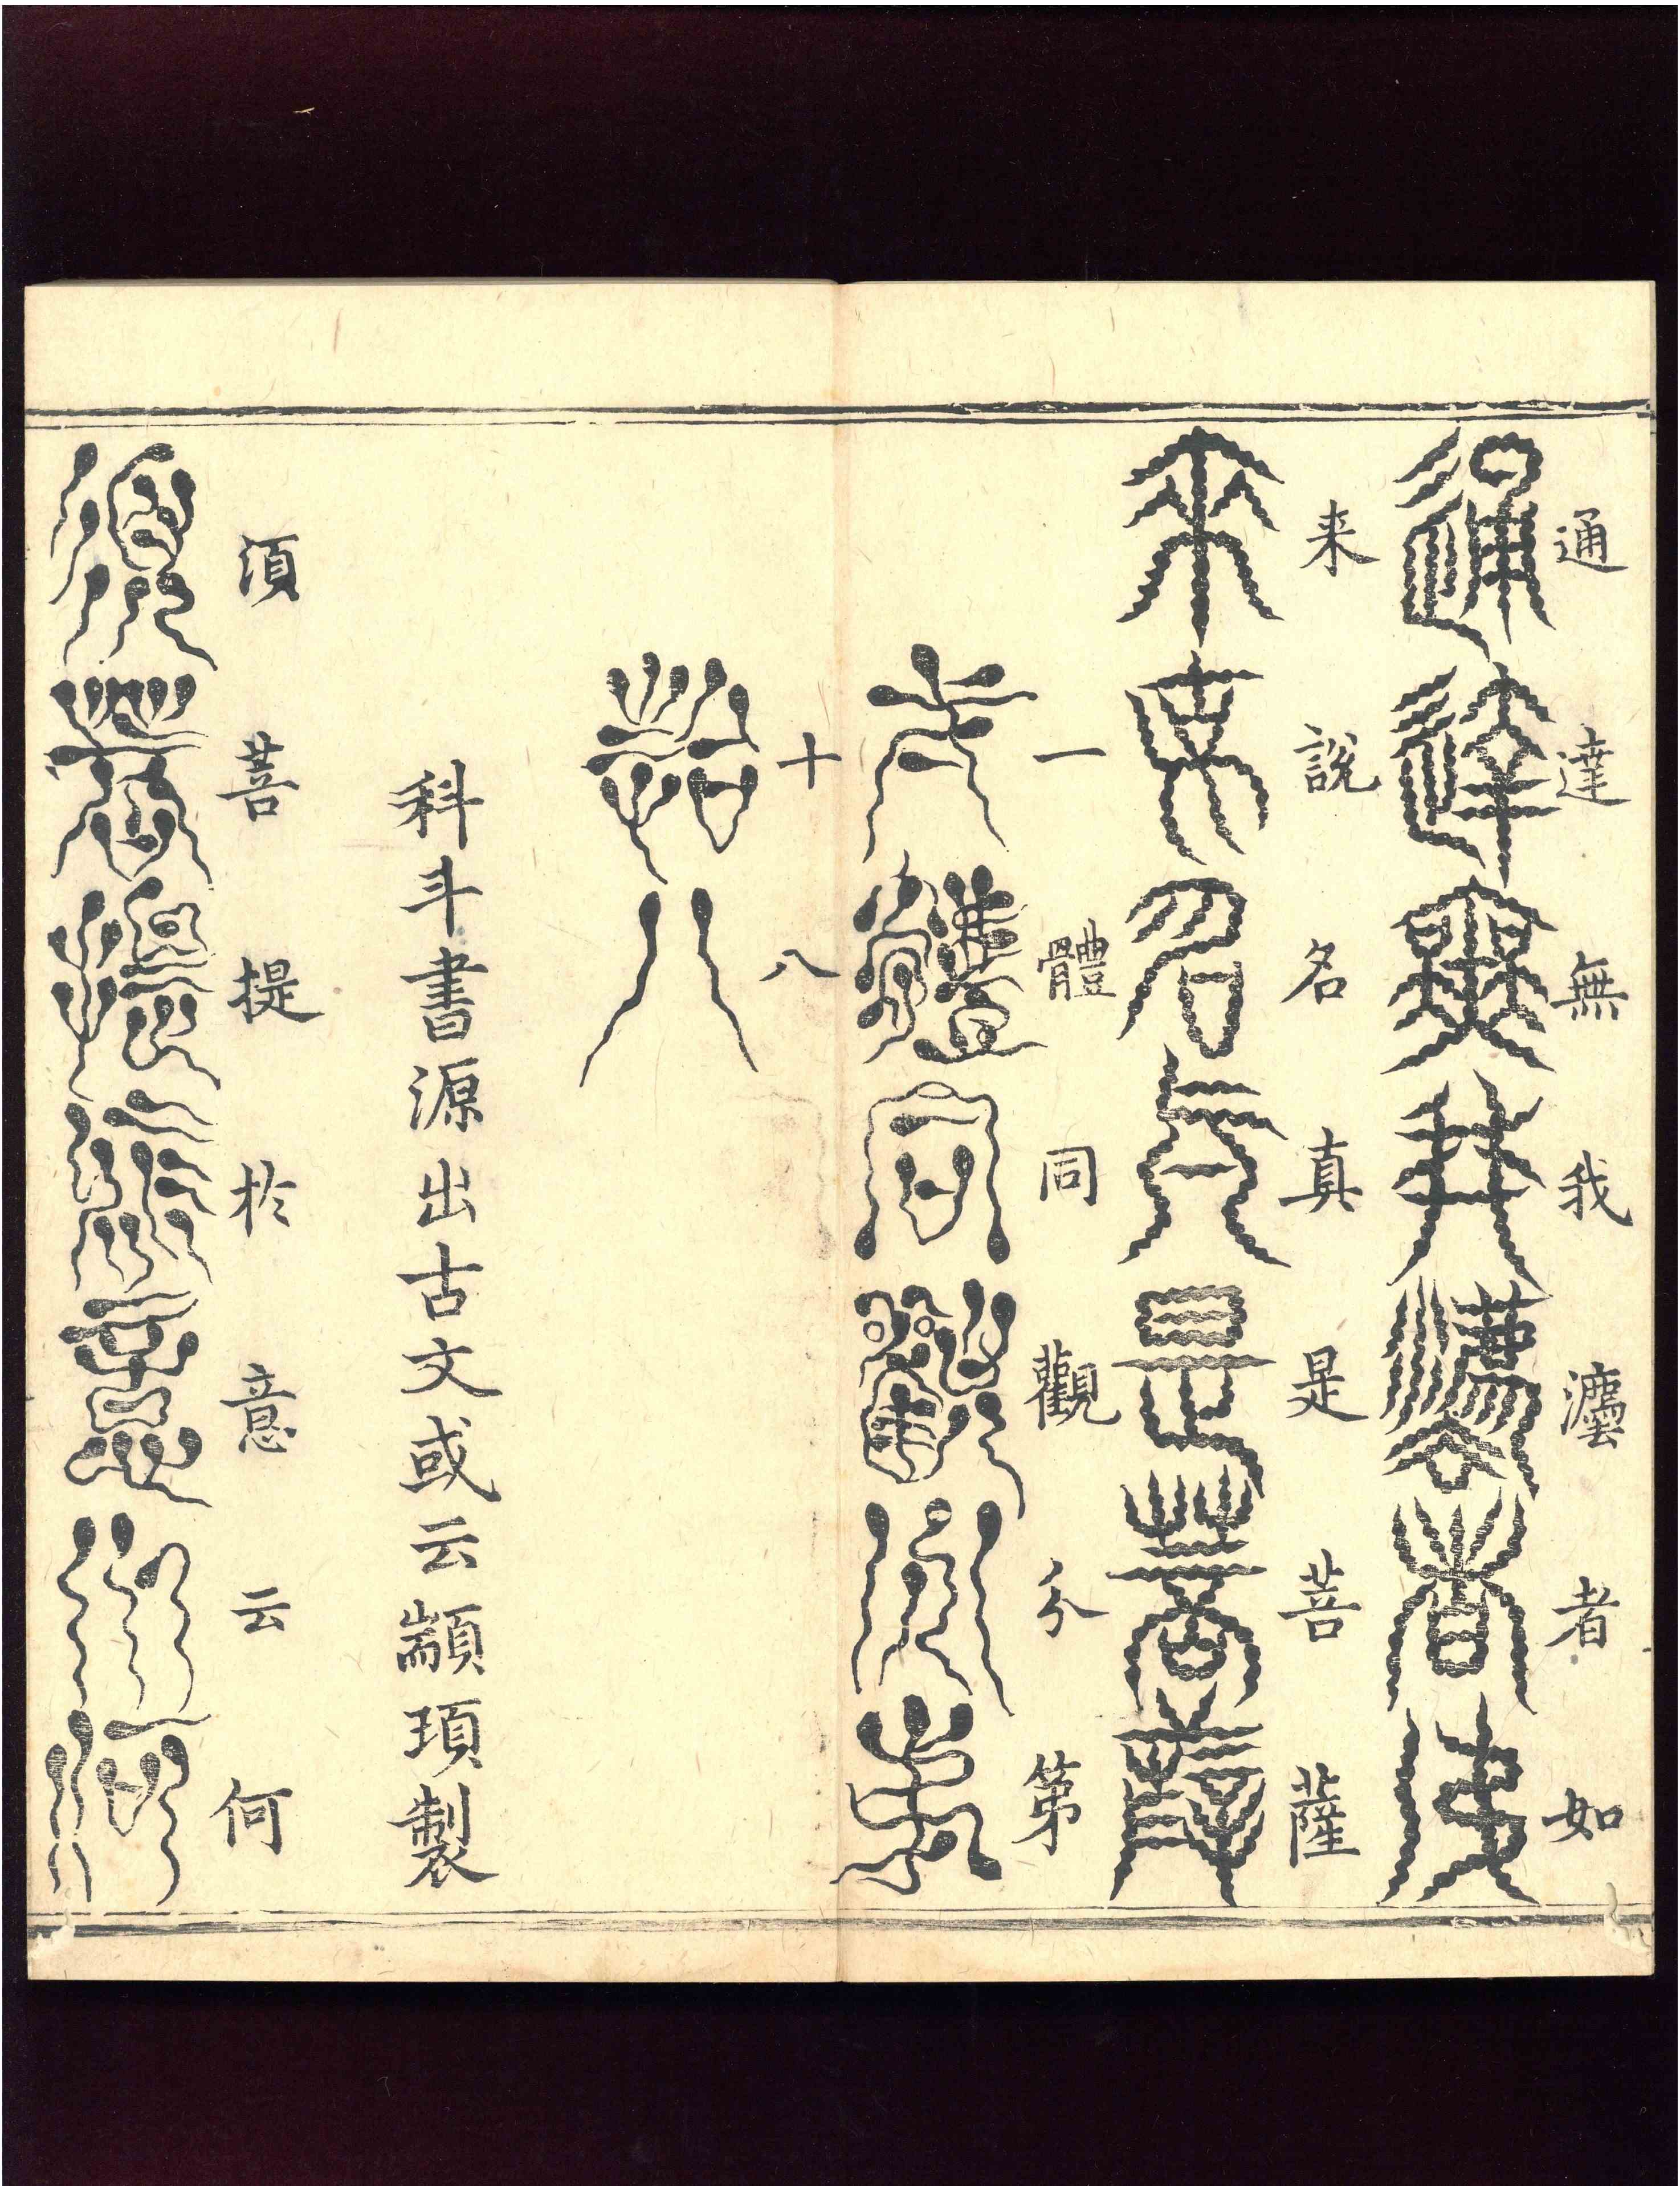 通達無我灋者如
来說名真是菩薩
一體同觀分第
十八
科斗書源出古文或云顓頊製
湏菩提扵意云何